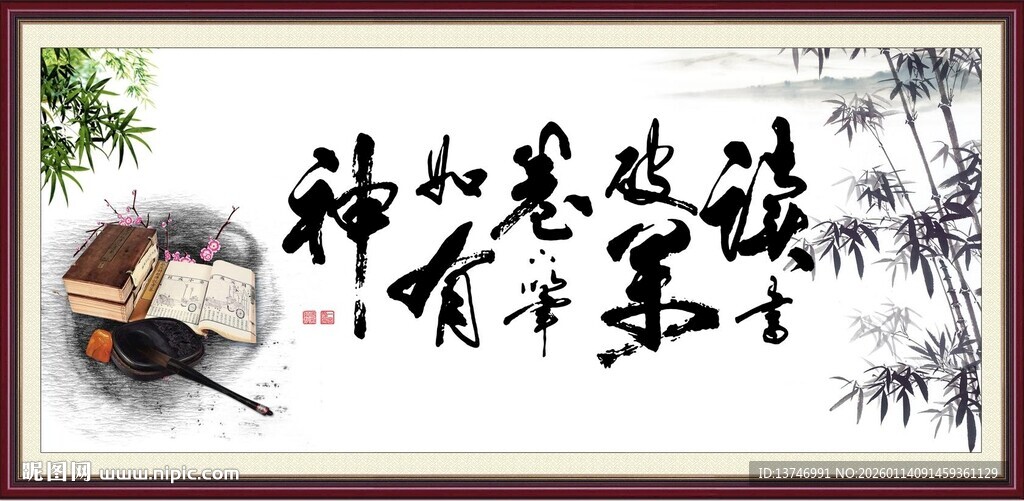 讀書
破萬
卷下筆
如有
神
昵图网 www.nipic.com
ID:13746991 NO:20260114091459361129